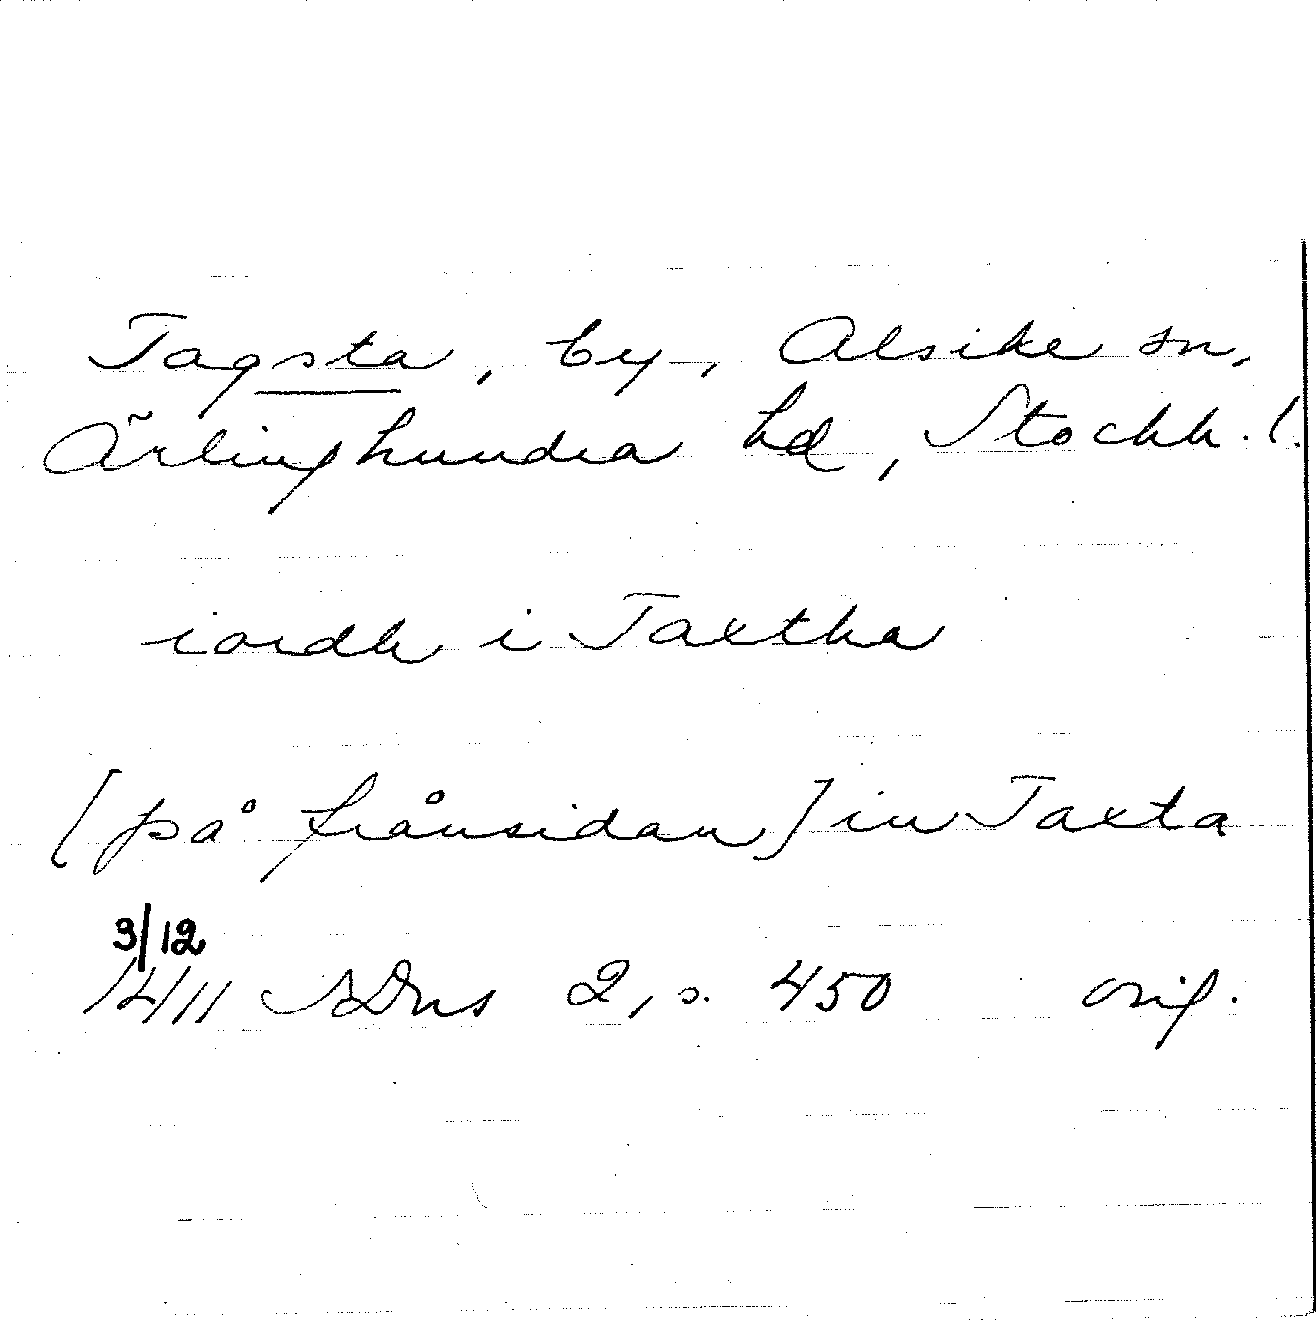 Tagsta, by, Alsike sn,
Ärlinghundra hd, Stockh. l.
iordh i Taxtha
[på frånsidan] in Taxta
3/12
1411 SDns 2, s. 450 orig.